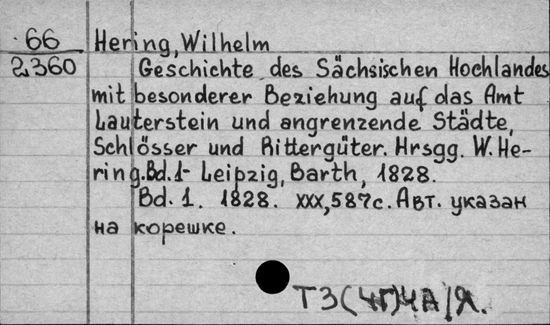 66 Hering, Wilhelm
2360 Geschichte des Sächsischen Hochlandes
mit besonderer Beziehung auf das Amt
Lauterstein und angrenzende Städte,
Schlösser und Rittergüter. Hrsgg. W. He-
ring. Bd. 1- Leipzig, Barth, 1828.
Bd. 1. 1828. XXX, 587 с. Авт. указан
на корешке.
Т3(4Г)4Я/Я.